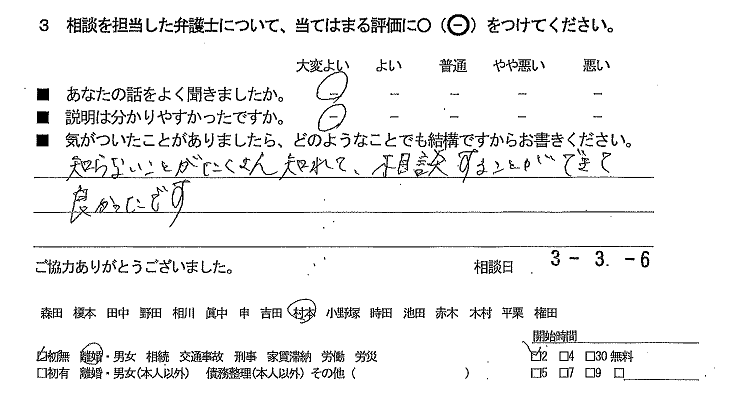 3 相談を担当した弁護士について、当てはまる評価に○（⊖）をつけてください。
大変よい よい 普通 やや悪い 悪い
■ あなたの話をよく聞きましたか。 － － － － －
■ 説明は分かりやすかったですか。 － － － － －
■ 気がついたことがありましたら、どのようなことでも結構ですからお書きください。
知らないことがたくさん知れて、相談することができて
良かったです
ご協力ありがとうございました。 相談日 3－3.－6
森田 榎本 田中 野田 相川 眞中 申 吉田 村本 小野塚 時田 池田 赤木 木村 平栗 権田
開始時間
☑初無 離婚・男女 相続 交通事故 刑事 家賃滞納 労働 労災 ☑2 □4 □30 無料
□初有 離婚・男女(本人以外) 債務整理(本人以外) その他（ ） □5 □7 □9 □